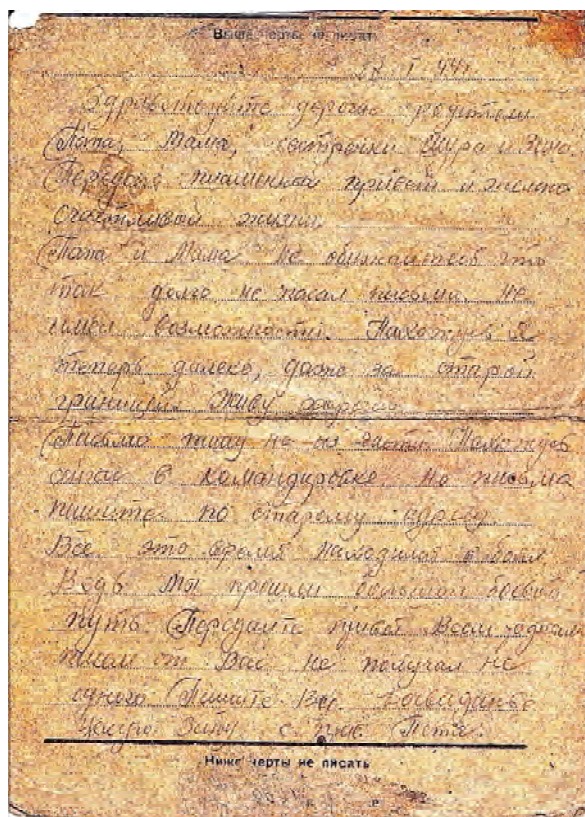 Выше черты не писать
44г
Здравствуйте дорогие родители
Папа, Мама, сестрёнки Шура и Зина.
Передаю пламенный привет и желаю
счастливой жизни.
Папа и Мама не обижайтесь что
так долго не писал письма. Не
имел возможности. Нахожусь я
теперь далеко, даже за старой
границей. Живу хорошо
Письмо пишу не из части. Нахожусь
сейчас в командировке но письма
пишите по старому адресу
Все это время находился в боях
Ведь мы прошли большой боевой
путь. Передайте привет всем
писем от Вас не получал не
одного. Пишите все. Досвиданье
Целую с прив Петя.
Ниже черты не писать